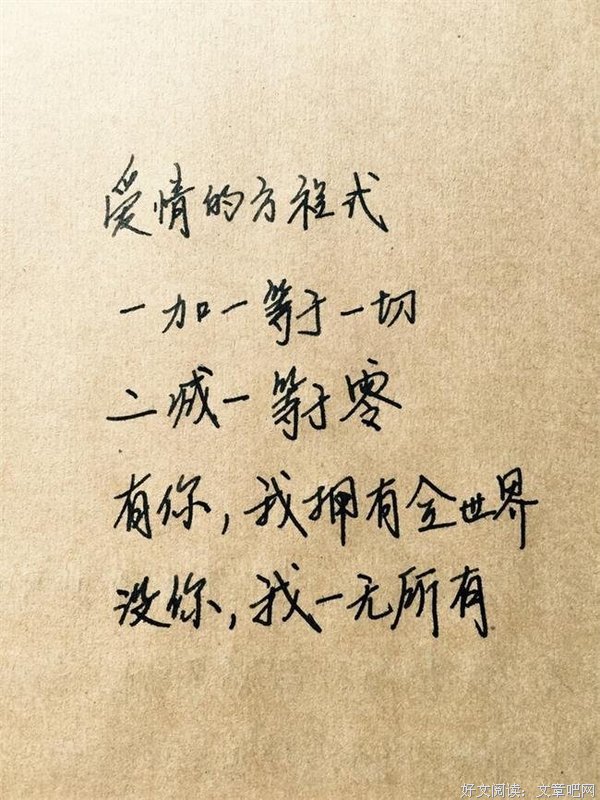 爱情的方程式
一加一等于一切
二减一等于零
有你,我拥有全世界
没你,我一无所有
好文阅读: 文章吧网